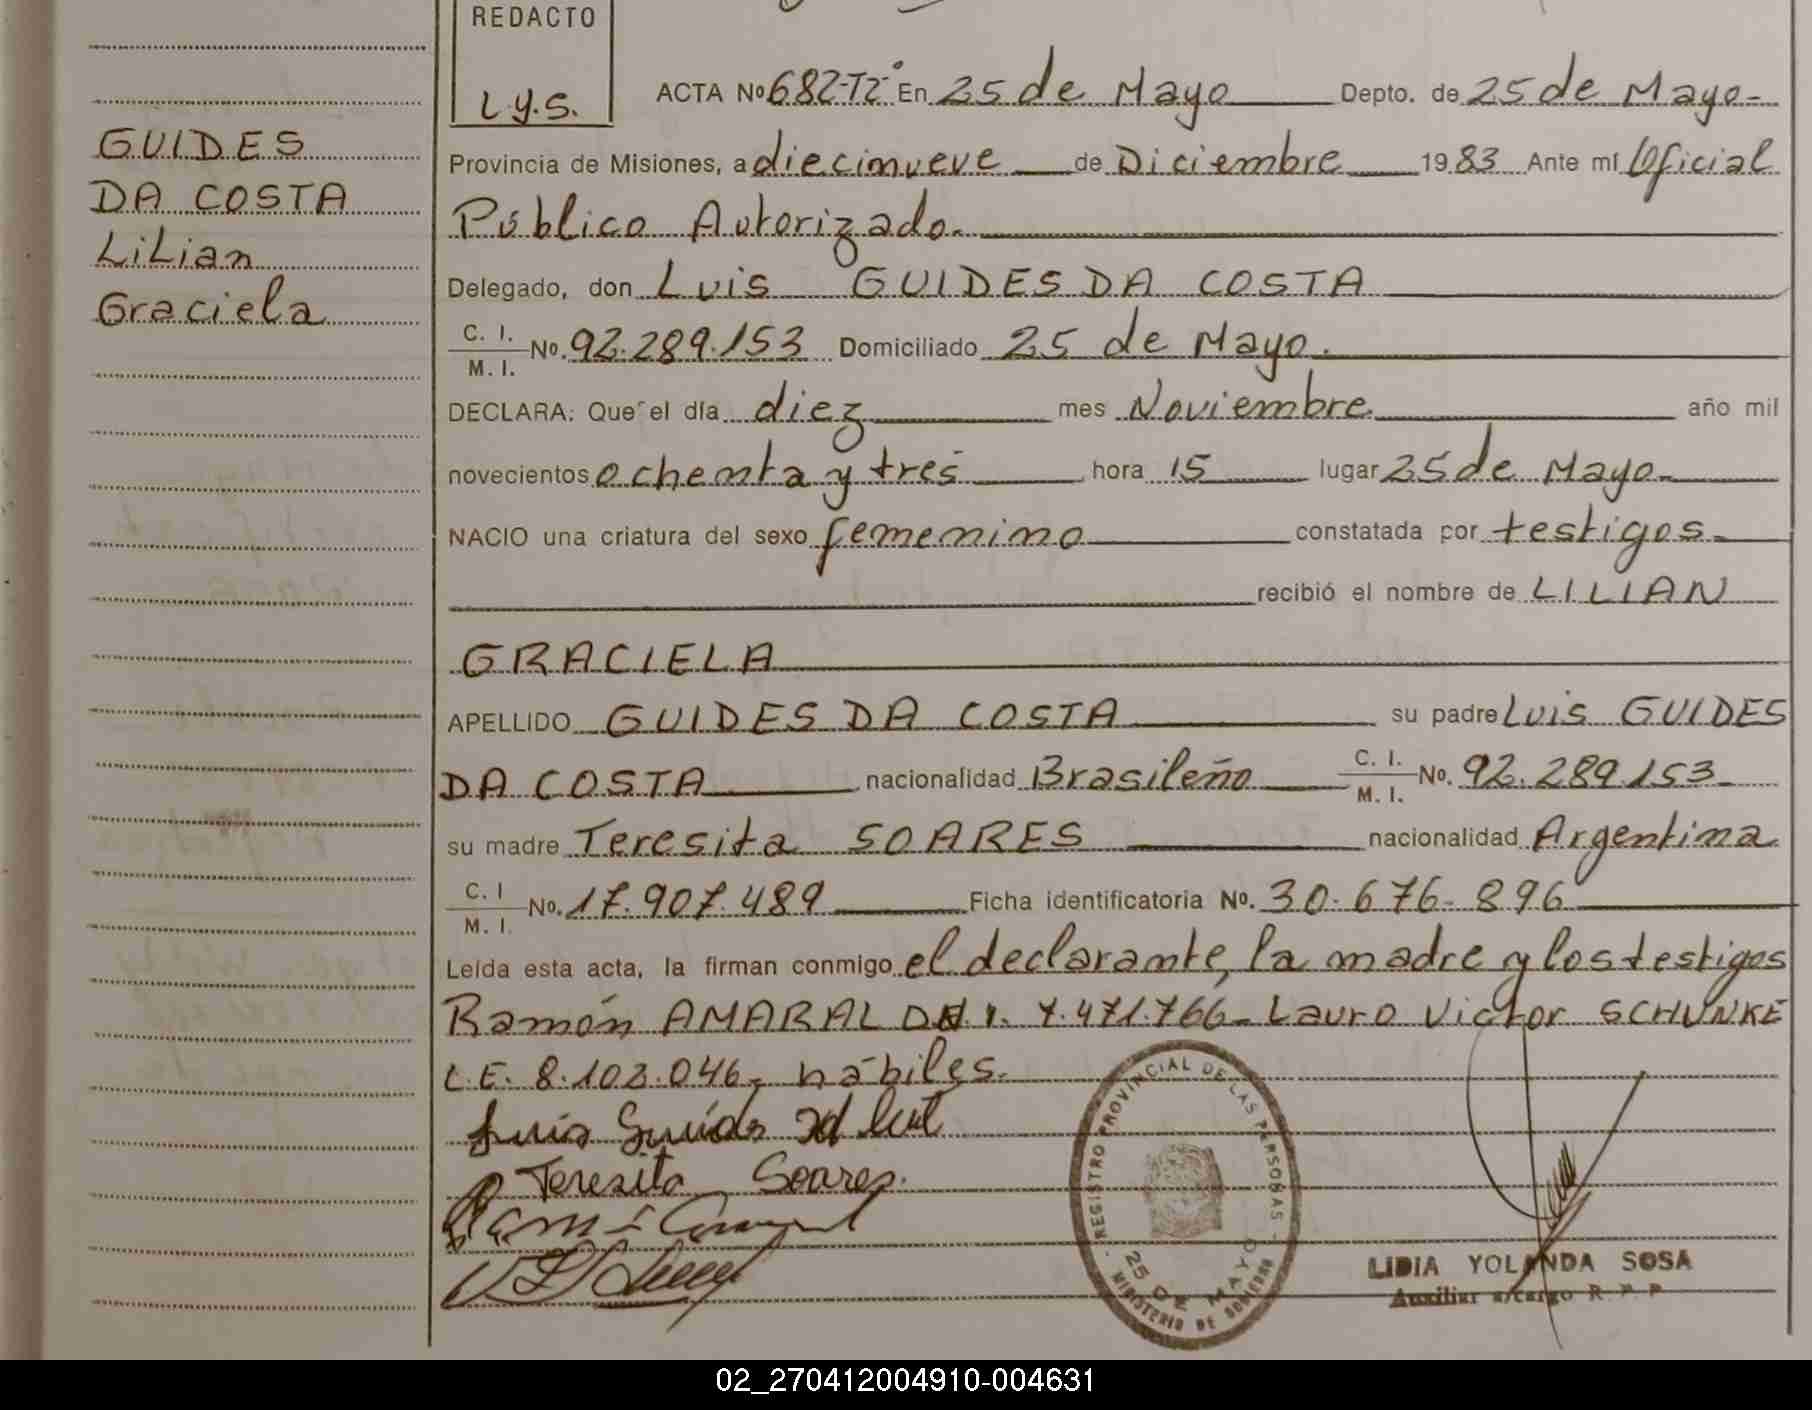 REDACTO
L.y.S.
ACTA Nº 682-T2º En 25 de Mayo Depto. de 25 de Mayo-
GUIDES
DA COSTA
LiLian
Graciela
Provincia de Misiones, a diecinueve de Diciembre 1983 Ante mí Oficial
Público Autorizado.
Delegado, don Luis GUIDES DA COSTA
C. I.
M. I. No. 92.289.153 Domiciliado 25 de Mayo.
DECLARA: Que el día diez mes Noviembre año mil
novecientos ochenta y tres hora 15 lugar 25 de Mayo-
NACIO una criatura del sexo femenino constatada por testigos-
recibió el nombre de LILIAN
GRACIELA
APELLIDO GUIDES DA COSTA su padre Luis GUIDES
DA COSTA nacionalidad Brasileño C. I. M. I. No. 92.289.153-
su madre Teresita SOARES nacionalidad Argentina
C. I M. I. No. 17.907.489 Ficha identificatoria No. 30.676-896
Leída esta acta, la firman conmigo el declarante, la madre y los testigos
Ramón AMARAL 7.471.766- Lauro Victor SCHUNKE
L.E. 8.103.046, hábiles.
Luis Guides
Teresita Soares.
REGISTRO PROVINCIAL DE LAS PERSONAS
25 DE MAYO
MINISTERIO DE GOBIERNO
LIDIA YOLANDA SOSA
Auxiliar a/cargo R. P. P
02_270412004910-004631